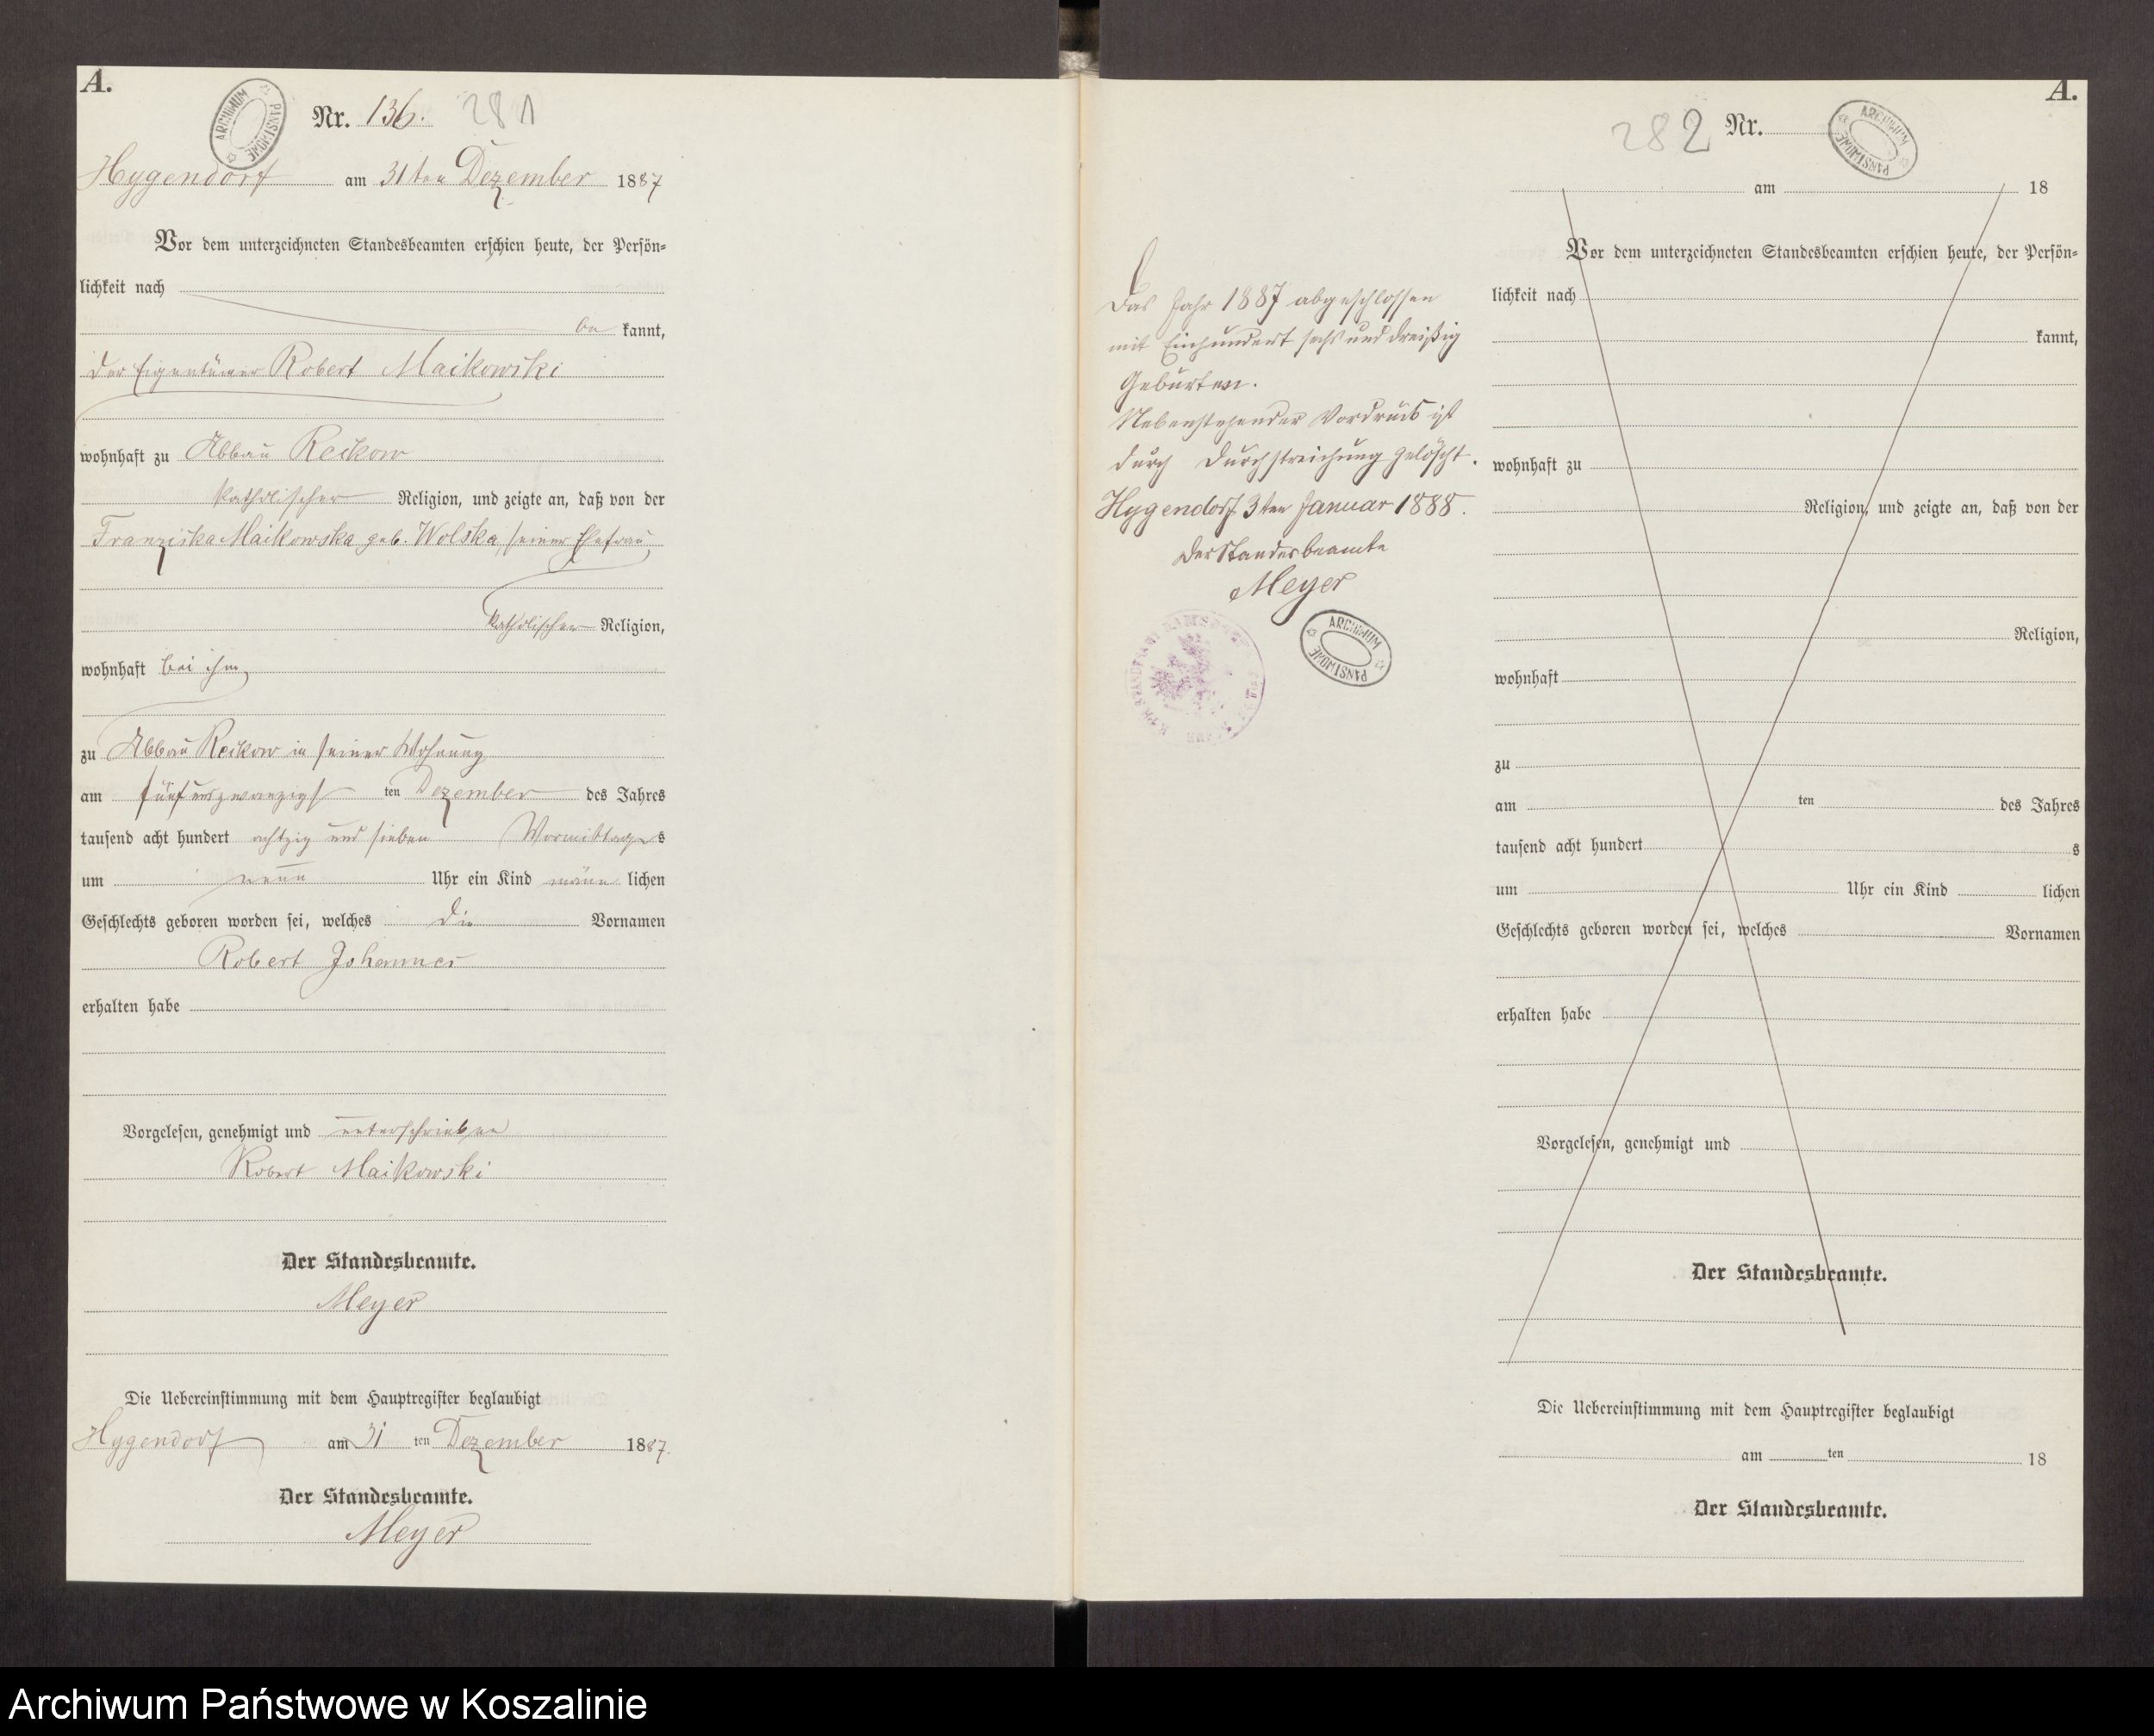 A.
ARCHIWUM PAŃSTWOWE
Nr. 136. 281
Hygendorf am 31ten Dezember 1887
Vor dem unterzeichneten Standesbeamten erschien heute, der Persön-
lichkeit nach
be kannt,
der Eigentümer Robert Maikowski
wohnhaft zu Abbau Reckow
katholischer Religion, und zeigte an, daß von der
Franziska Maikowska geb. Wolska, seiner Ehefrau
katholischer Religion,
wohnhaft bei ihm
zu Abbau Reckow in seiner Wohnung
am fünfundzwanzigst ten Dezember des Jahres
tausend acht hundert achtzig und sieben Vormittags
um neun Uhr ein Kind männ lichen
Geschlechts geboren worden sei, welches die Vornamen
Robert Johannes
erhalten habe
Vorgelesen, genehmigt und unterschrieben
Robert Maikowski
Der Standesbeamte.
Meyer
Die Uebereinstimmung mit dem Hauptregister beglaubigt
Hygendorf am 31 ten Dezember 1887.
Der Standesbeamte.
Meyer
Das Jahr 1887 abgeschlossen
mit Einhundert sechs und dreißig
Geburten.
Nebenstehender Vordruck ist
durch Durchstreichung gelöscht.
Hygendorf 3ten Januar 1888.
Der Standesbeamte
Meyer
ARCHIWUM PAŃSTWOWE
A.
282 Nr.
ARCHIWUM PAŃSTWOWE
am 18
Vor dem unterzeichneten Standesbeamten erschien heute, der Persön-
lichkeit nach
kannt,
wohnhaft zu
Religion, und zeigte an, daß von der
Religion,
wohnhaft
zu
am ten des Jahres
tausend acht hundert s
um Uhr ein Kind lichen
Geschlechts geboren worden sei, welches Vornamen
erhalten habe
Vorgelesen, genehmigt und
Der Standesbeamte.
Die Uebereinstimmung mit dem Hauptregister beglaubigt
am ten 18
Der Standesbeamte.
Archiwum Państwowe w Koszalinie